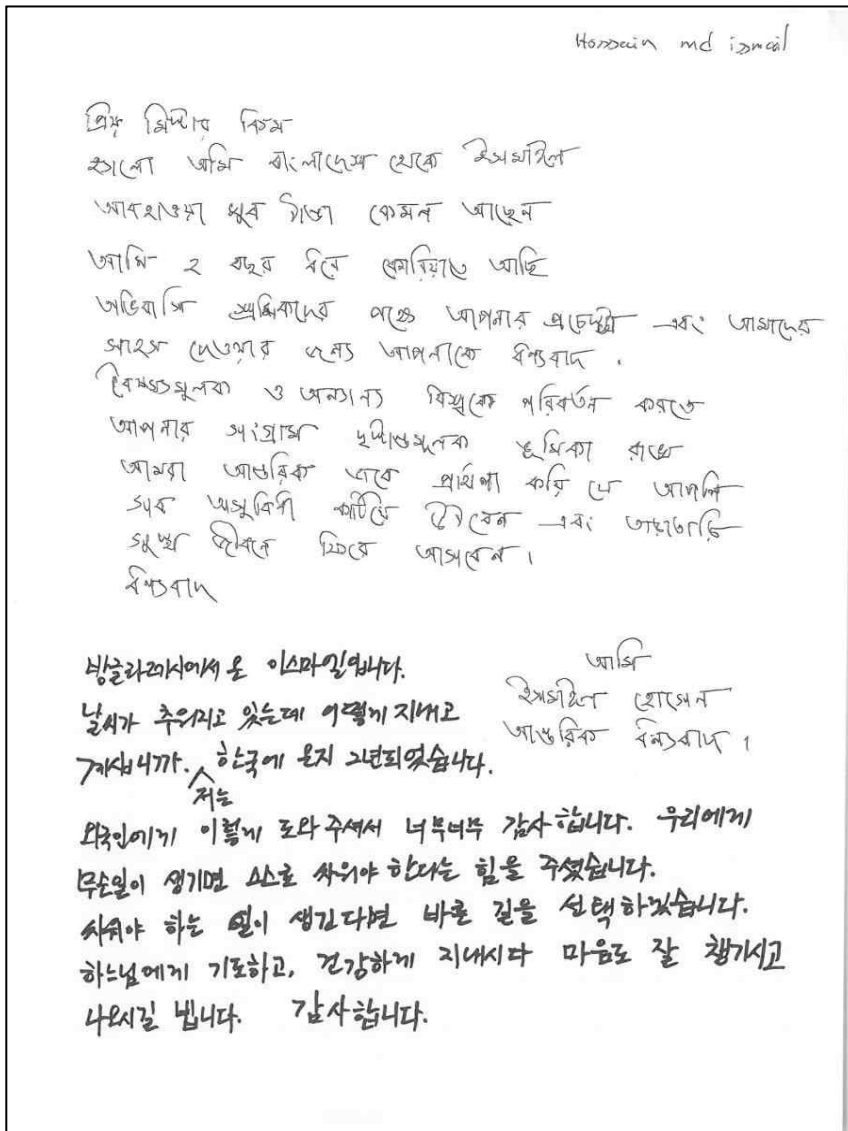 Hossain md ismail
প্রিয় মিস্টার কিম
হ্যালো আমি বাংলাদেশ থেকে ইসমাইল
আবহাওয়া খুব ঠান্ডা কেমন আছেন
আমি ২ বছর ধরে কোরিয়াতে আছি
অভিবাসি শ্রমিকদের পক্ষে আপনার প্রচেষ্টা এবং আমাদের
সাহস দেওয়ার জন্য আপনাকে ধন্যবাদ .
বৈষম্যমূলক ও অন্যান্য বিশ্বকে পরিবর্তন করতে
আপনার সংগ্রাম দৃষ্টান্তমূলক ভূমিকা রাখে
আমরা আন্তরিক ভাবে প্রার্থণা করি যে আপনি
সব অসুবিধা কাটিয়ে উঠবেন এবং তাড়াতাড়ি
সুস্থ জীবনে ফিরে আসবেন।
ধন্যবাদ
আমি
ইসমাইল হোসেন
আন্তরিক ধন্যবাদ।
방글라데시에서 온 이스마일입니다.
날씨가 추워지고 있는데 어떻게 지내고
계십니까. 저는 한국에 온지 2년되었습니다.
외국인에게 이렇게 도와 주셔서 너무너무 감사합니다. 우리에게
무슨일이 생기면 스스로 싸워야 한다는 힘을 주셨습니다.
싸워야 하는 일이 생긴다면 바른 길을 선택하겠습니다.
하느님에게 기도하고, 건강하게 지내시다 마음도 잘 챙기시고
나오시길 빕니다. 감사합니다.